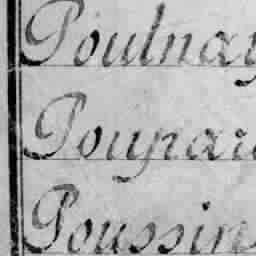 Poulnay
Poupar
Poussin